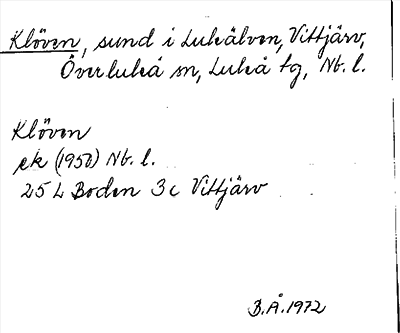 Klöven, sund i Luleälven, Vittjärv,
Överluleå sn, Luleå tg, Nb. l.
Klöven
ek (1950) Nb. l.
25 L Boden 3c Vittjärv
B.Å. 1972